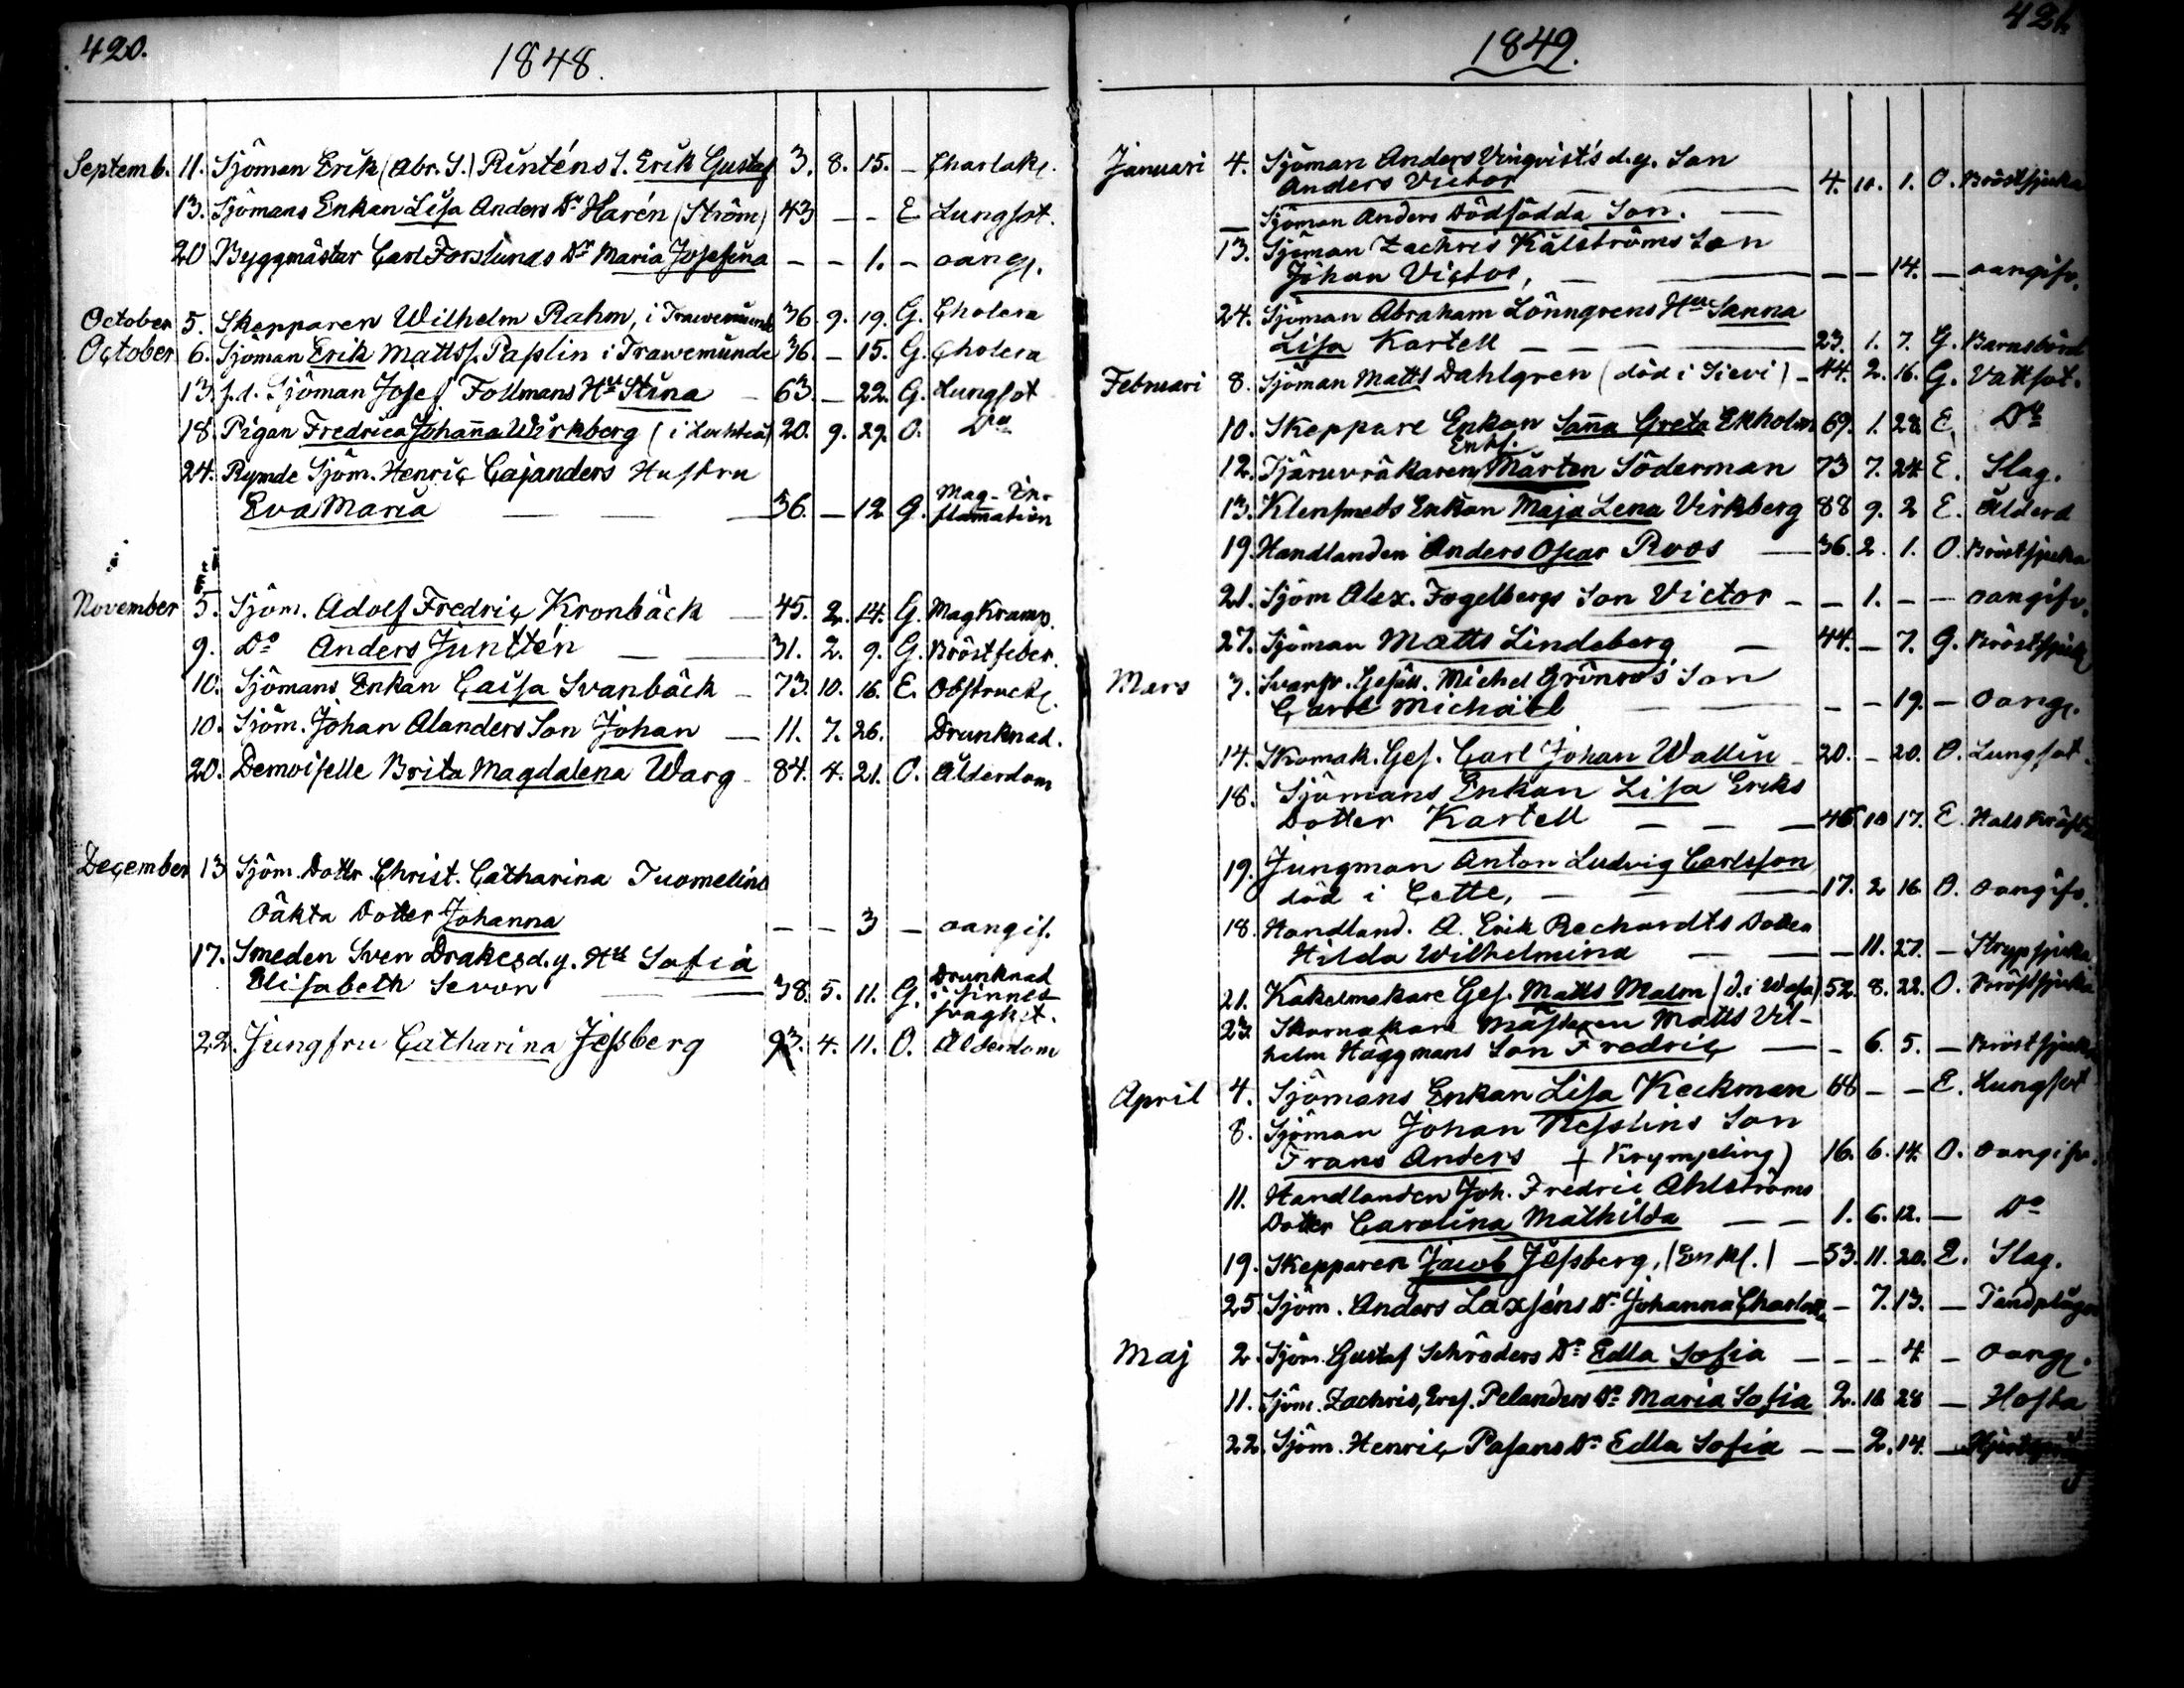 420.
1848.
Septemb. 11. Sjöman Erik (Abr. S.) Rinténs S. Erik Gustaf 3. 8. 15. – Charlakf.
13. Sjömans Enkan Lisa Anders Dr Harén (Ström) 43 – – E Lungsot.
20 Byggmästar Carl Forslunds Dr Maria Josefina – – 1. – oangf.
October 5. Skepparen Wilhelm Rahm, i Trawemünde 36. 9. 19. G. Cholera
October 6. Sjöman Erik Mattss. Paslin i Trawemünde 36. – 15. G. Cholera
13. f.d. Sjöman Josef Follmans Hu Stina – 63. – 22. G. Lungsot
18. Pigan Fredrica Johanna Wirkberg (i Lochteå) 20. 9. 29. O. Do
24. Rymde Sjöm. Henric Cajanders Hustru
Eva Maria — — — 36. – 12 G. Mag-In-
flamation
November 5. Sjöm. Adolf Fredric Kronbäck — 45. 2. 14. G. Magkramp.
9. Do Anders Junttén — — 31. 2. 9. G. Bröstfeber.
10. Sjömans Enkan Caisa Svanbäck – 73. 10. 16. E. Obstructf.
10. Sjöm. Johan Alanders Son Johan — 11. 7. 26. Drunknad.
20. Demoiselle Brita Magdalena Warg – 84. 4. 21. O. Ålderdom
December 13 Sjöm. Dottr. Christ. Catharina Tuomelins
Oäkta Dotter Johanna – – 3 – oangif.
17. Smeden Sven Drakes d.y. Hu Sofia
Elisabeth Sevon — — 38. 5. 11. G. Drunknad
i sinnes-
svaghet.
22. Jungfru Catharina Jessberg 93. 4. 11. O. Ålderdom
1849.
Januari 4. Sjöman Anders Vinqvist's d.y. Son
Anders Victor — — 4. 10. 1. O. Bröstsjuka
— Sjöman Anders Dödfödda Son. —
13. Sjöman Zachris Kålströms Son
Johan Victor, — — – – 14. – oangifv.
24. Sjöman Abraham Lönngrens Hu Sanna
Lisa Kartell – – — 23. 1. 7. G. Barnsbörd
Februari 8. Sjöman Matts Dahlgren (död i Sievi) – 44. 2. 16. G. Vattsot.
10. Skeppare Enkan Sanna Greta Ekholm 69. 1. 28. E. Do
Enkl.
12. Tjäruvräkaren Mårten Söderman 73 7. 24 E. Slag.
13. Klensmeds Enkan Maja Lena Virkberg 88 9. 2 E. Ålderd
19. Handlanden Anders Oscar Roos — 36. 2. 1. O. Bröstsjuka
21. Sjöm Alex. Fogelbergs Son Victor – – 1. – – oangifv.
27. Sjöman Matts Lindeberg — 44. – 7. G. Bröstsjuk
Mars 3. Svarfv. Gesäll. Michel Grönroos Son
Carl Michaël — — – – 19. – Oangf.
14. Skomak. Ges. Carl Johan Wallin – 20. – 20. O. Lungsot.
18. Sjömans Enkan Lisa Eriks
Dotter Kartell – – – 46 10 17. E.
19. Jungman Anton Ludvig Carlsson
död i Cette, – – — 17. 2 16 O. oangifv.
18. Handland. A. Erik Rechardts Dotter
Hilda Wilhelmina — — – 11. 27. – Strypsjuka
21. Kakelmakare Ges. Matts Malm (d. i Wasa) 52. 8. 22. O. Bröstsjuka
23 Skomakare Mästaren Matts Vil-
helm Häggmans Son Fredric — – 6. 5. – Bröstsjuka
April 4. Sjömans Enkan Lisa Keckman 68 – – E. Lungsot
8. Sjöman Johan Neslins Son
Frans Anders + Krympling) 16. 6. 14. O. oangifv.
11. Handlanden Joh. Fredric Ahlströms
Dotter Carolina Mathilda — – 1. 6. 12. – Do
19. Skepparen Jacob Jessberg, (Enkl.) – 53. 11. 20. E. Slag.
25. Sjöm. Anders Laxséns Dr Johanna Charlott. – 7. 13. –
Maj 2. Sjöm. Gustaf Schröders Dr Edla Sofia – – – 4 – oangf.
11. Sjöm. Zachris, Erss. Pelanders Dr Maria Sofia 2. 10 28 – Hosta
22. Sjöm. Henric Pasans Dr Edla Sofia – – 2. 14. –